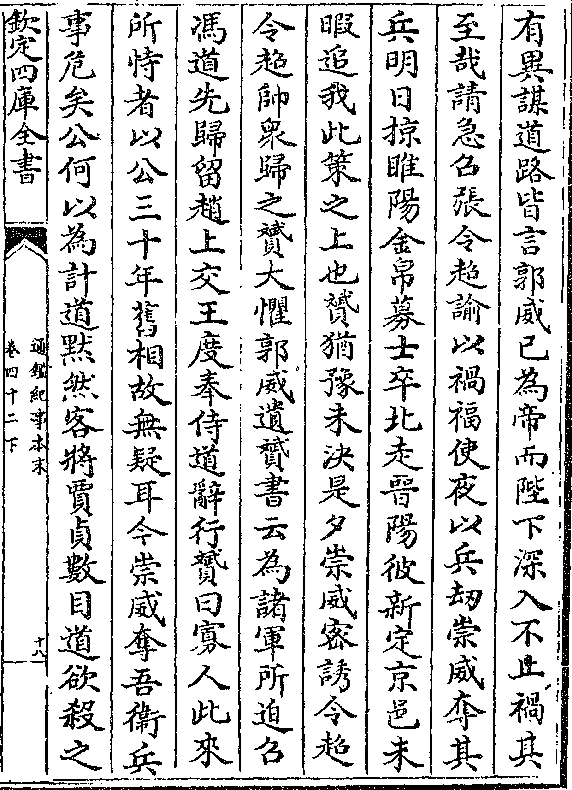 有異謀道路皆言郭威已為帝而陛下深入不止禍其
至哉請急召張令超諭以禍福使夜以兵劫崇威奪其
兵明日掠睢陽金帛募士卒北走晉陽彼新定京邑未
暇追我此策之上也贇猶豫未決是夕崇威密誘令超
令超帥衆歸之贇大懼郭威遺贇書云為諸軍所迫召
馮道先歸留趙上交王度奉侍道辭行贇曰寡人此來
所恃者以公三十年舊相故無疑耳今崇威奪吾衞兵
事危矣公何以為計道黙然客將賈貞數目道欲殺之
欽定四庫全書
通鑑紀事本末
卷四十二下
十八